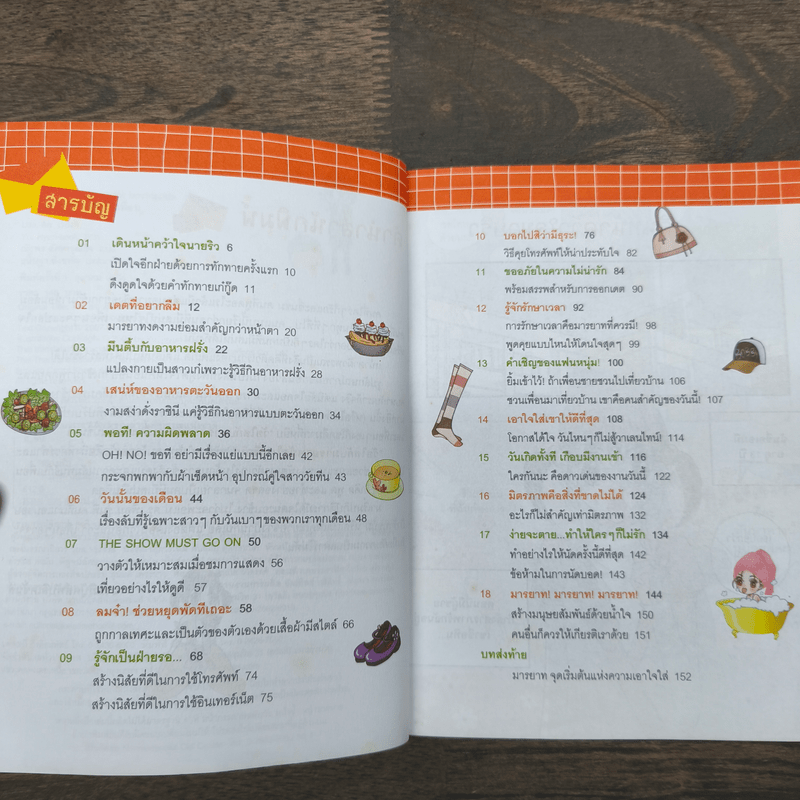 สารบัญ
01 เดินหน้าคว้าใจนายริว 6
เปิดใจอีกฝ่ายด้วยการทักทายครั้งแรก 10
ดึงดูดใจด้วยคำทักทายเก๋กู๊ด 11
02 เดตที่อยากลืม 12
มารยาทงดงามย่อมสำคัญกว่าหน้าตา 20
03 มึนตึ้บกับอาหารฝรั่ง 22
แปลงกายเป็นสาวเก๋เพราะรู้วิธีกินอาหารฝรั่ง 28
04 เสน่ห์ของอาหารตะวันออก 30
งามสง่าดั่งราชินี แค่รู้วิธีกินอาหารแบบตะวันออก 34
05 พอที! ความผิดพลาด 36
OH! NO! ขอที อย่ามีเรื่องแย่แบบนี้อีกเลย 42
กระจกพกพากับผ้าเช็ดหน้า อุปกรณ์คู่ใจสาววัยทีน 43
06 วันนั้นของเดือน 44
เรื่องลับที่รู้เฉพาะสาวๆ กับวันเบาๆ ของพวกเราทุกเดือน 48
07 THE SHOW MUST GO ON 50
วางตัวให้เหมาะสมเมื่อชมการแสดง 56
เที่ยวอย่างไรให้ดูดี 57
08 ลมจ๋า! ช่วยหยุดพัดทีเถอะ 58
ถูกกาลเทศะและเป็นตัวของตัวเองด้วยเสื้อผ้ามีสไตล์ 66
09 รู้จักเป็นฝ่ายรอ... 68
สร้างนิสัยที่ดีในการใช้โทรศัพท์ 74
สร้างนิสัยที่ดีในการใช้อินเทอร์เน็ต 75
10 บอกไปสิว่ามีธุระ! 76
วิธีคุยโทรศัพท์ให้น่าประทับใจ 82
11 ขออภัยในความไม่น่ารัก 84
พร้อมสรรพสำหรับการออกเดต 90
12 รู้จักรักษาเวลา 92
การรักษาเวลาคือมารยาทที่ควรมี! 98
พูดคุยแบบไหนให้โดนใจสุดๆ 99
13 คำเชิญของแฟนหนุ่ม! 100
ยิ้มเข้าไว้! ถ้าเพื่อนชายชวนไปเที่ยวบ้าน 106
ชวนเพื่อนมาเที่ยวบ้าน เขาคือคนสำคัญของวันนี้! 107
14 เอาใจใส่เขาให้ดีที่สุด 108
โอกาสได้ใจ วันไหนๆ ก็ไม่สู้วาเลนไทน์! 114
15 วันเกิดทั้งที เกือบมีงานเข้า 116
ใครกันนะ คือดาวเด่นของงานวันนี้ 122
16 มิตรภาพคือสิ่งที่ขาดไม่ได้ 124
อะไรก็ไม่สำคัญเท่ามิตรภาพ 132
17 ง่ายจะตาย...ทำให้ใครๆ ก็ไม่รัก 134
ทำอย่างไรให้นัดครั้งนี้ดีที่สุด 142
ข้อห้ามในการนัดบอด! 143
18 มารยาท! มารยาท! มารยาท! 144
สร้างมนุษยสัมพันธ์ด้วยน้ำใจ 150
คนอื่นก็ควรให้เกียรติเราด้วย 151
บทส่งท้าย
มารยาท จุดเริ่มต้นแห่งความเอาใจใส่ 152